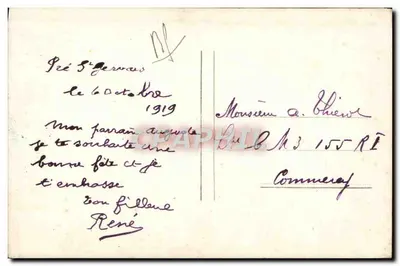 Pré St Gervais
le 6 Octobre
1919
Mon parrain
je te souhaite une
bonne fête et je
t'embrasse
Ton filleul
René
Monsieur a. Thierot
CM 3 155 RI
Commercy